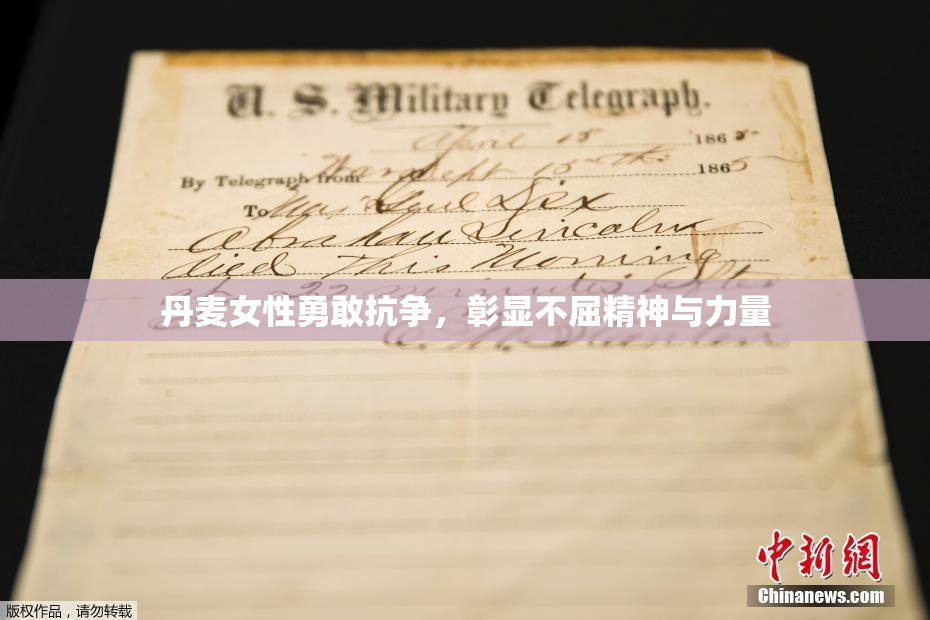 U. S. Military Telegraph.
April 15 1865
By Telegraph from War Dept 15th 1865
To Maj Genl Dix
Abraham Lincoln
died This Morning
at 22 minutes after
丹麦女性勇敢抗争，彰显不屈精神与力量
E. M. Stanton
中新网
Chinanews.com
版权作品，请勿转载